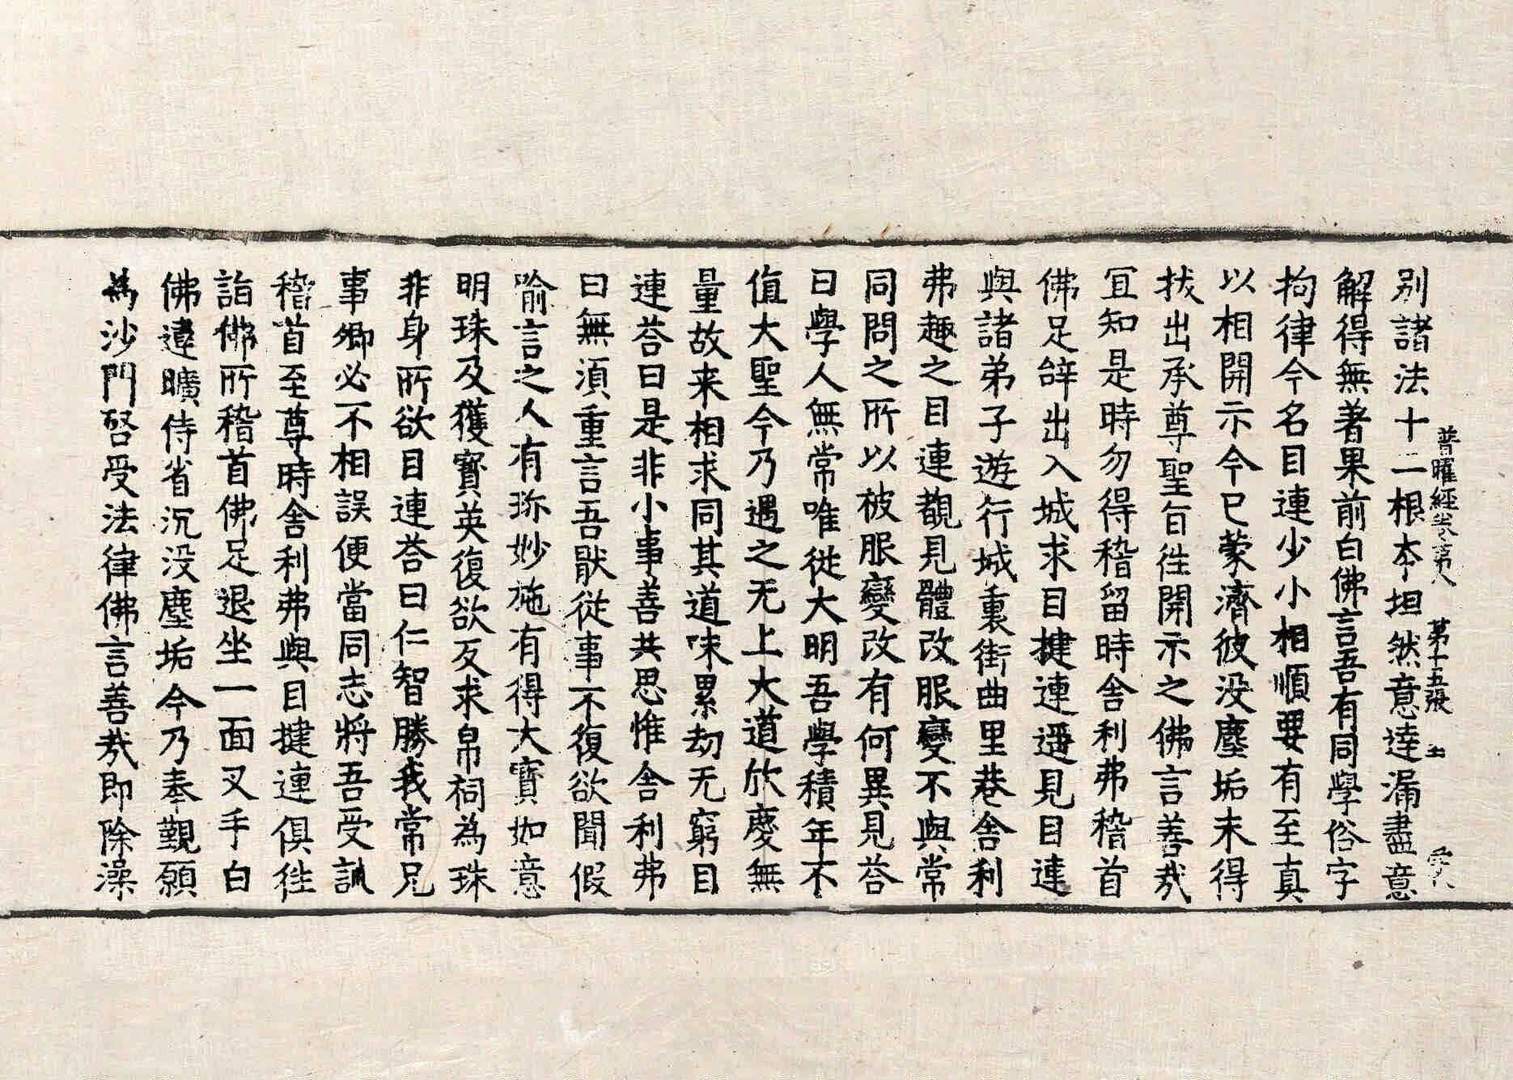 別諸法十二根本坦然意達漏盡意
普曜經卷第八 第十五張
解得無著果前白佛言吾有同學俗字
拘律今名目連少小相順要有至真
以相開示今已蒙濟彼没塵垢未得
拔出承尊聖旨徃開示之佛言善哉
冝知是時勿得稽留時舎利弗稽首
佛足辝出入城求目揵連遥見目連
與諸弟子遊行城裏街曲里巷舎利
弗趣之目連覩見體改服變不與常
同問之所以被服變改有何異見荅
曰學人無常唯従大明吾學積年不
值大聖今乃遇之无上大道欣慶無
量故来相求同其道味累劫无窮目
連荅曰是非小事善共思惟舎利弗
曰無湏重言吾猒従事不復欲聞假
喻言之人有珎妙施有得大寳如意
明珠及獲寳英復欲反求帛祠為珠
非身所欲目連荅曰仁智勝我常兄
事卿必不相誤便當同志將吾受訓
稽首至尊時舎利弗與目揵連俱徃
詣佛所稽首佛足退坐一面叉手白
佛違曠侍省沉没塵垢今乃奉覲願
為沙門啓受法律佛言善哉即除澡